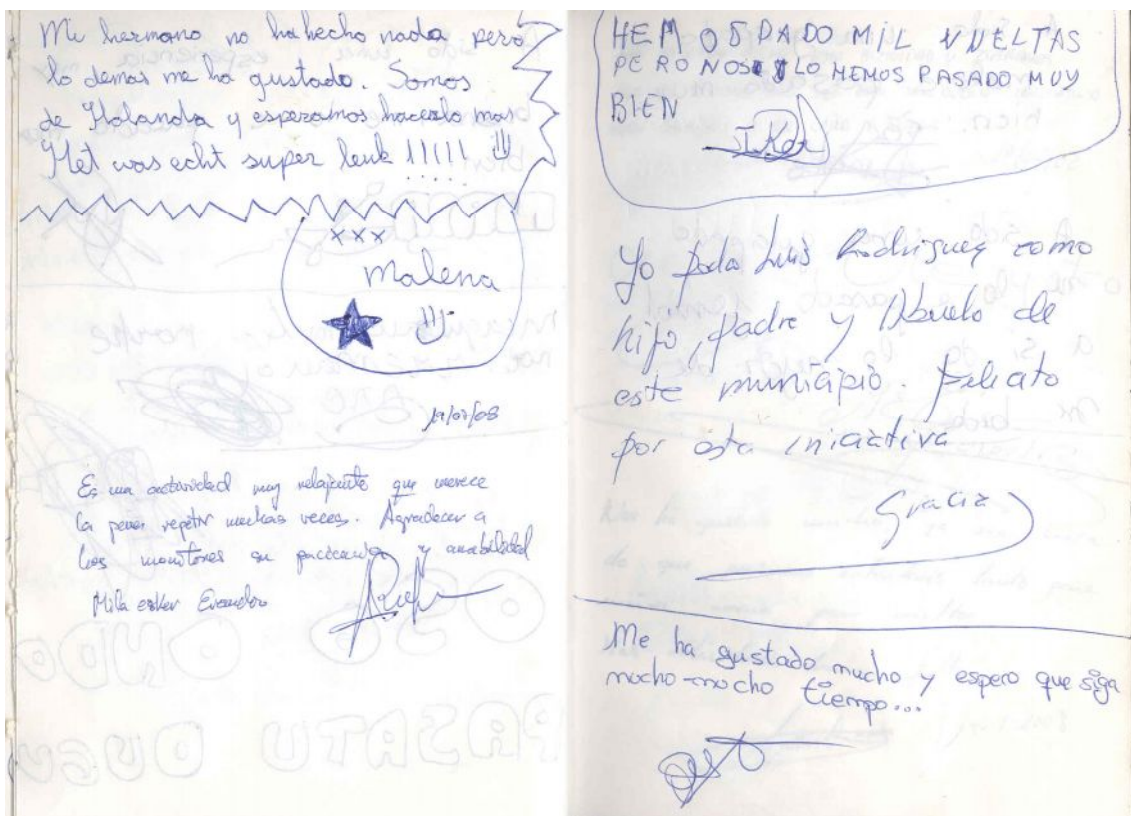 Mi hermano no ha hecho nada pero
lo demas me ha gustado. Somos
de Holanda y esperamos hacerlo mas
Het was echt super leuk !!!!!
xxx
Malena
19/07/08
Es una actividad muy relajante que merece
la pena repetir muchas veces. Agradecer a
los monitores su paciencia y amabilidad
Mila esker Evandro
HEMOS DADO MIL VUELTAS
PERO NOS LO HEMOS PASADO MUY
BIEN
Iker
Yo Luis Rodriguez como
hijo, padre y Abuelo de
este municipio. felicito
por esta iniciativa
Gracia
Me ha gustado mucho y espero que siga
mocho-mocho tiempo...
OSO ONDO
PASATU DUGU